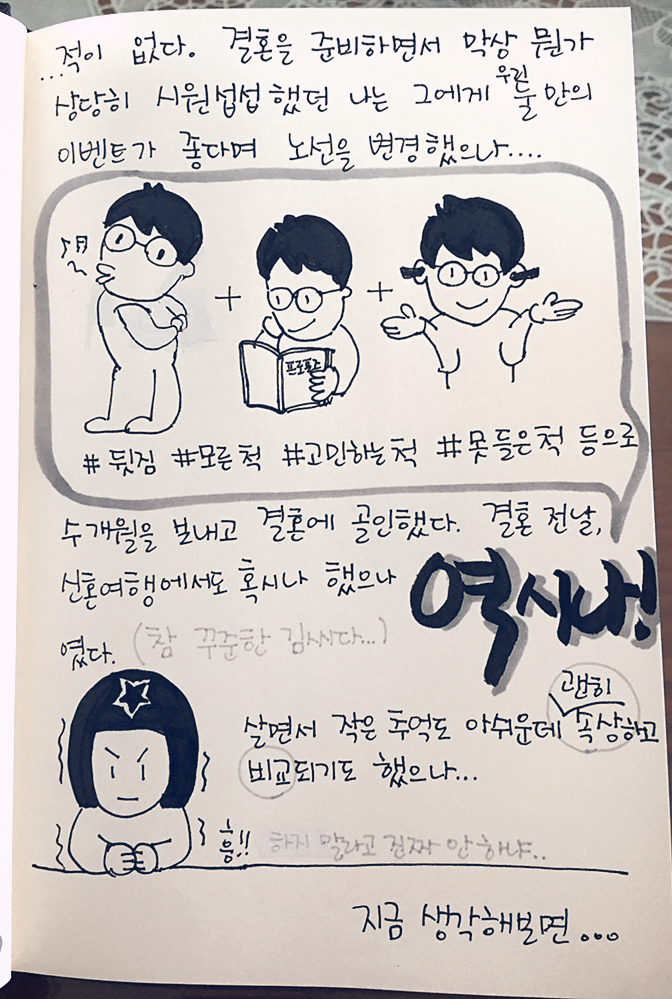 ...적이 없다. 결혼을 준비하면서 막상 뭔가
상당히 시원섭섭했던 나는 그에게 우린 둘만의
이벤트가 좋다며 노선을 변경했으나....
프로포즈
#뒷짐 #모른척 #고민하는척 #못들은척 등으로
수개월을 보내고 결혼에 골인했다. 결혼 전날,
신혼여행에서도 혹시나 했으나 역시나!
였다. (참 꾸준한 김씨다...)
살면서 작은 추억도 아쉬운데 괜히 속상하고
비교되기도 했으나...
흐응!! 하지 말라고 진짜 안하냐..
지금 생각해보면...